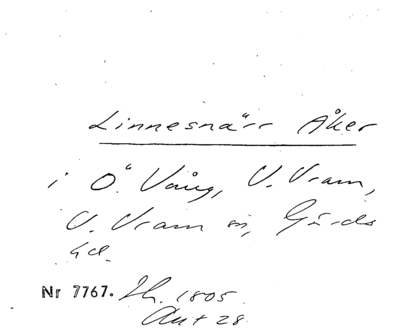 Linnesnärr Åker
i Ö. Vång, V. Vram,
V. Vram sn, Gärds
hd.
Nr 7767. Sh. 1805.
Akt 28.